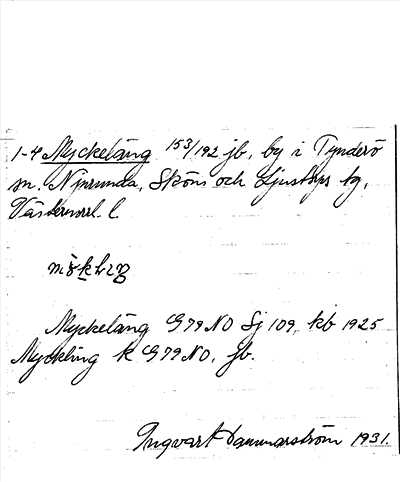 1-4 Myckeläng 153/192 jb, by i Tynderö
sn. Njurunda, Sköns och Ljustorps tg,
Västernorrl. l.
Myckeläng G79NO Sj 109, kb 1925
Myckling k G79NO, jb.
Ingvart Hammarström 1931.